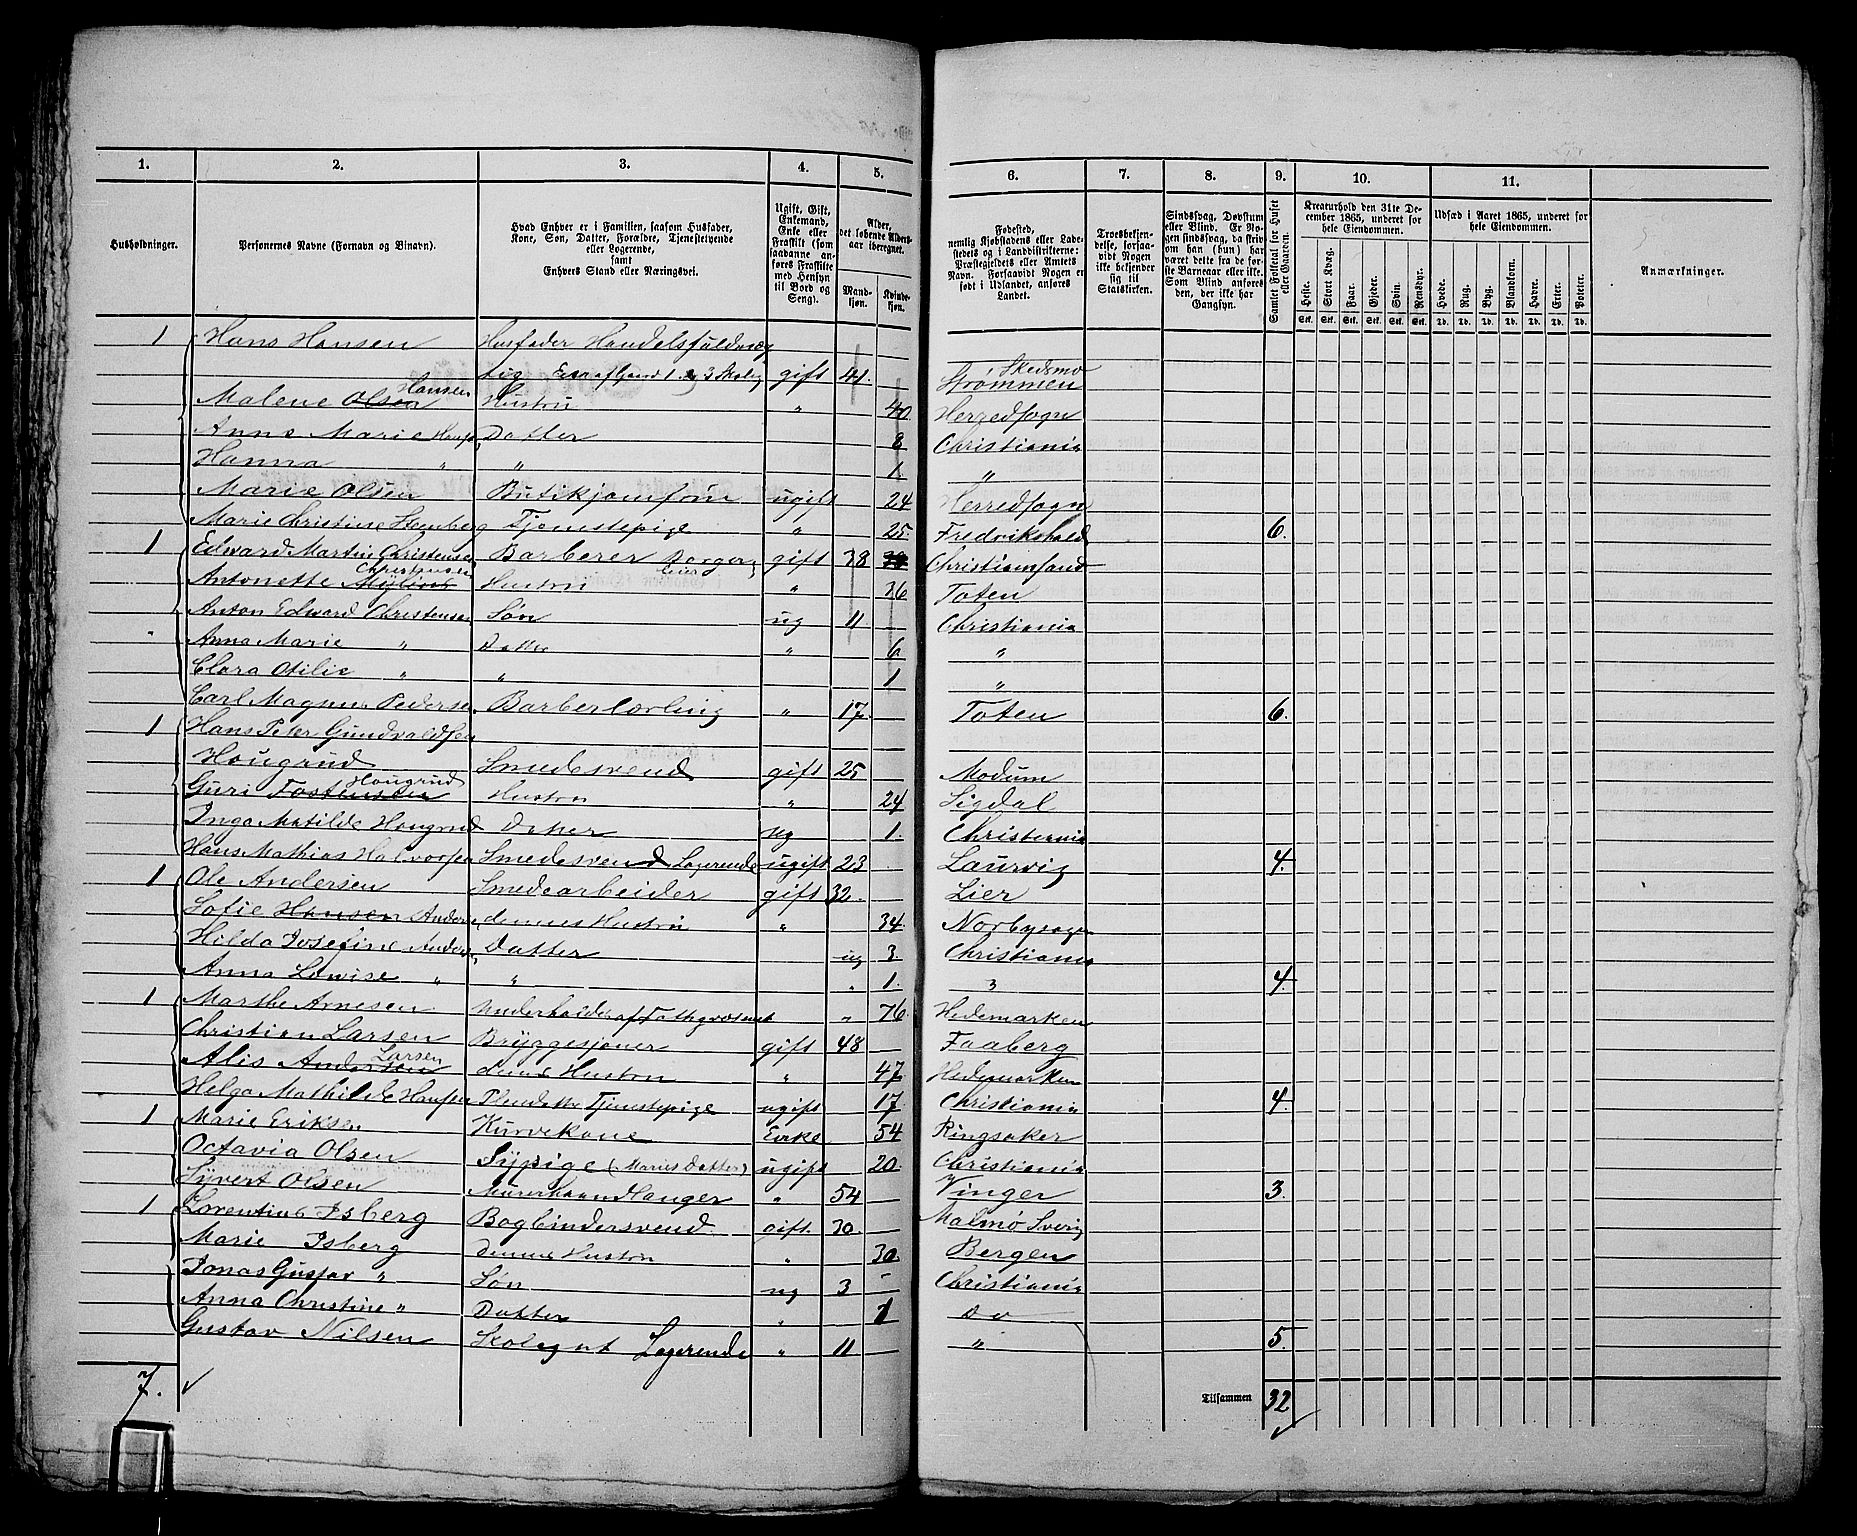 1. 2. 3. 4. 5. 6. 7. 8. 9. 10. 11.
Husholdninger.
Personernes Navne (Fornavn og Binavn).
Hvad Enhver er i Familien, saasom Husfader, Kone, Søn, Datter, Forældre, Tjenestetyende eller Logerende, samt Enhvers Stand eller Næringsvei.
Ugift, Gift, Enkemand, Enke eller Fraskilt (som saadanne anføres Fraskilte med Hensyn til Bord og Seng).
Alder, det løbende Aldersaar iberegnet.
Mandkjøn. Kvindekjøn.
Fødested, nemlig Kjøbstadens eller Ladestedets og i Landdistrikterne: Præstegjeldets eller Amtets Navn. Forsaavidt Nogen er født i Udlandet, anføres Landet.
Troesbekjendelse, forsaavidt Nogen ikke bekjender sig til Statskirken.
Sindssvag, Døvstum eller Blind. Er Nogen sindssvag, da skrives om han (hun) har været dette fra de første Barneaar eller ikke. Som Blind anføres den, der ikke har Gangsyn.
Samlet Folketal for Huset eller Gaarden.
Kreaturhold den 31te December 1865, underet for hele Eiendommen.
Heste. Stort Kvæg. Faar. Gjeder. Svin. Rensdyr.
Stk. Stk. Stk. Stk. Stk. Stk.
Udsæd i Aaret 1865, underet for hele Eiendommen.
Hvede. Rug. Byg. Blandkorn. Havre. Erter. Poteter.
Td. Td. Td. Td. Td. Td. Td.
Anmærkninger.
1 Hans Hansen Husfader Handelsfuldmæg
tig gift 41. Skedsmo Strømmen
Malene Olsen Hansen Hustru " 40 Herredsogn
Anne Marie Hansen Datter 8 Christiania
Hanna " " 1 "
Marie Olsen Butikjomfru ugift 24 Herredsogn
Marie Christine Stenberg Tjenestepige " 25. Fredrikshald 6.
1 Edward Martin Christensen Barberer Borger gift 38 Christiansand
Antonette Mylins Christensen Hustru " 36 Toten
Anton Edward Christensen Søn ug 11 Christiania
Anna Marie " Datter " 6 "
Clara Otilie " " 1 "
Carl Magnus Pedersen Barberlærling " 17. Toten 6.
1 Hans Peter Gundvaldsen
Hougrud Smedesvend gift 25 Modum
Guri Tostensen Hougrud Hustru " 24 Sigdal
Inga Matilde Hougrud Datter ug 1. Christiania
Hans Mathias Halvorsen Smedesvend Logerende ugift 23 Laurvig 4.
1 Ole Andersen Smedearbeider gift 32. Lier
Sofie Hansen Anders dennes Hustru " 34. Norbysogn
Hilda Josefine Anders Datter ug 3. Christiania
Anna Lovise " " " 1. " 4.
1 Marthe Arnesen Underholdes af Fattigvæsenet " 76. Hedemarken
Christian Larsen Bryggesjouer gift 48 Faaberg
Alis Andersen Larsen dennes Hustru " 47 Hedemarken
Helga Mathilde Hansen Tjenestepige ugift 17 Christiania 4.
1 Marie Eriksen Kurvekone Enke 54 Ringsaker
Octavia Olsen Sypige (Maries Datter) ugift 20. Christiania
Syvert Olsen Murerhaandlanger " 54 Vinger 3.
1 Lorentius Isberg Bogbindersvend gift. 30. Malmø Sverig
Marie Isberg Dennes Hustru " 30 Bergen
Jonas Gustav " Søn ug 3 Christiania
Anna Christine " Datter " 1 Do
Gustav Nilsen Skolegut Logerende " 11 " 5.
7. Tilsammen 32